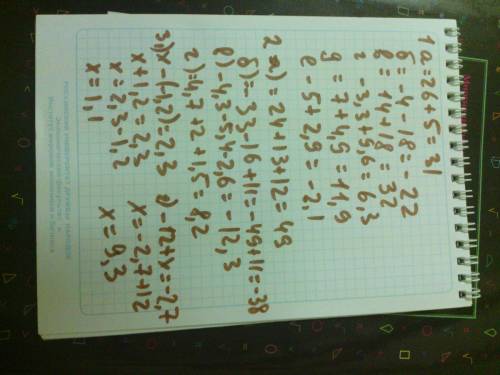 1 a=26+5=31
б=-4-18=-22
в=+14+18=32
г-3,3+9,6=6,3
g=7+4,9=11,9
e-5+2,9=-2,1
2 а)=24+13+12=49
б)=-33-16+11=-49+11=-38
в)-4,3-5,4-2,6=-12,3
г)=4,7+2+1,5=8,2
3,)x-(-1,2)=2,3 в)-12+y=-2,7
x+1,2=2,3 x=-2,7+12
x=2,3-1,2 x=9,3
x=1,1